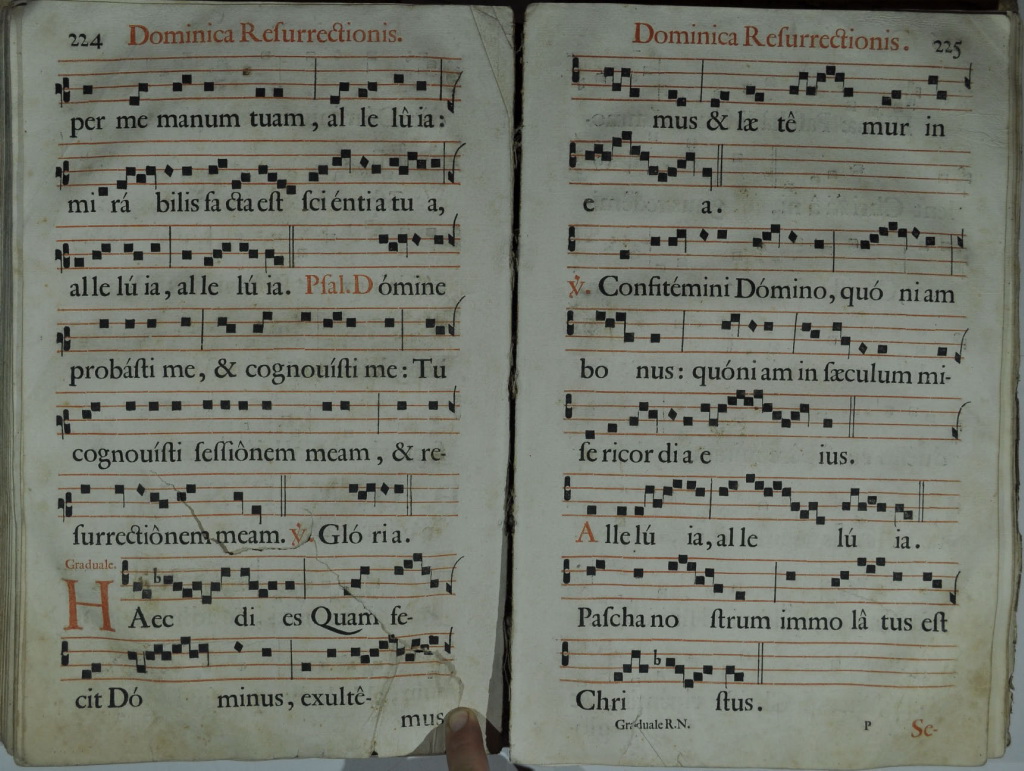 224 Dominica Reſurrectionis.
per me manum tuam, al le lû ia:
mi rá bilis fa cta eſt ſci énti a tu a,
al le lú ia, al le lú ia. Pſal. D ómine
probáſti me, & cognouíſti me: Tu
cognouíſti ſeſſiônem meam, & re-
ſurrectiônem meam. ℣. Gló ri a.
Graduale.
HAec di es Quam fe-
cit Dó minus, exultê-
mus
Dominica Reſurrectionis. 225
mus & læ tê mur in
e a.
℣. Confitémini Dómino, quó ni am
bo nus: quóni am in ſæculum mi-
ſe ricor di a e ius.
A lle lú ia, al le lú ia.
Paſcha no ſtrum immo lâ tus eſt
Chri ſtus.
Graduale R.N. P Sc-